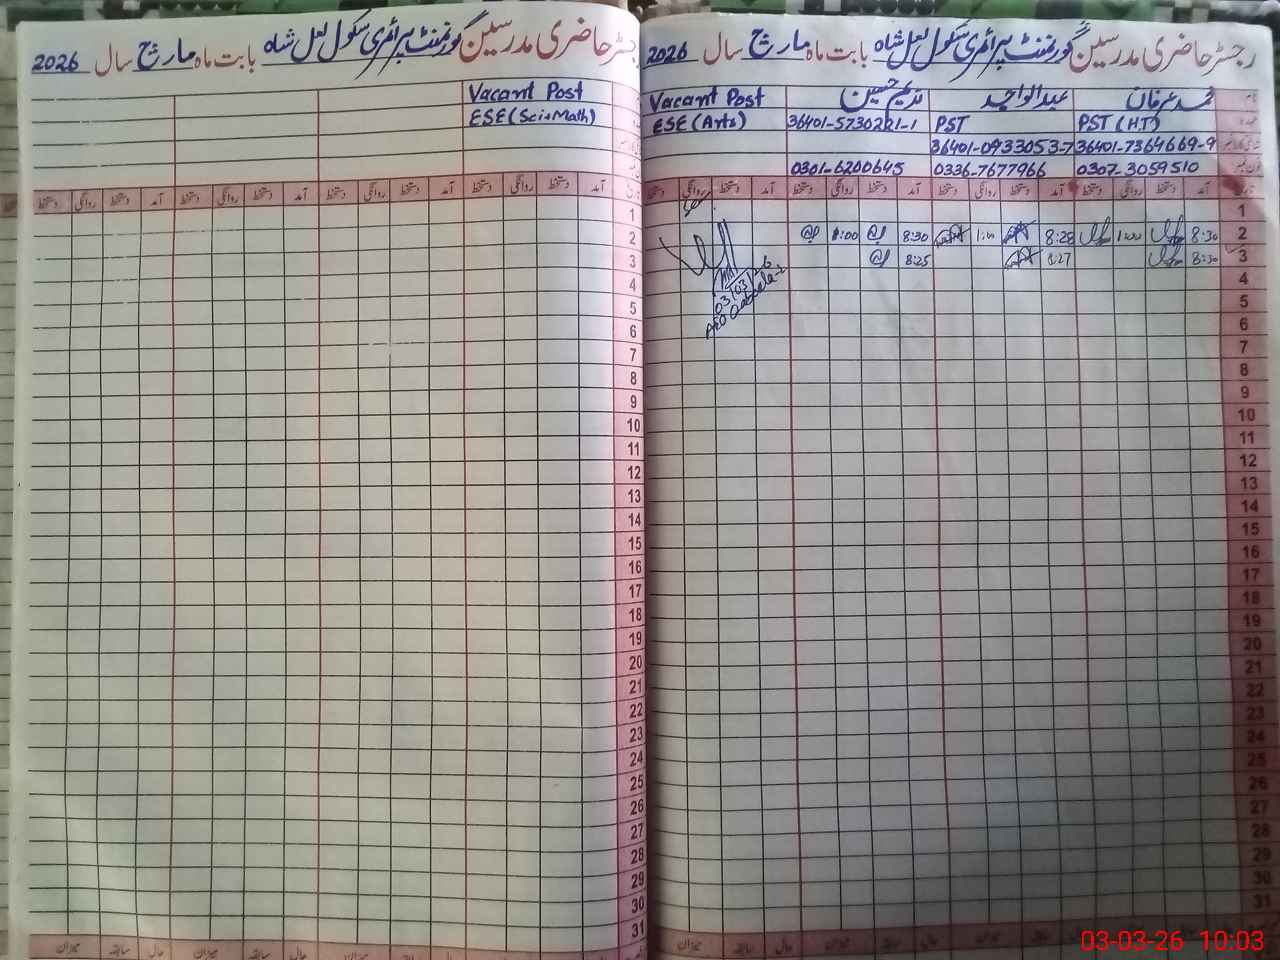 رجسٹر حاضری مدرسین گورنمنٹ پرائمری سکول لعل شاہ بابت ماہ مارچ سال 2026
محمد عرفان
PST (H.T)
36401-7364669-9
0307-3059510
عبدالواحد
PST
36401-0933053-7
0336-7677966
ندیم حسین
36401-5730221-1
0301-6200645
Vacant Post
ESE (Arts)
آمد دستخط روانگی دستخط آمد دستخط روانگی دستخط آمد دستخط روانگی دستخط آمد دستخط روانگی دستخط
1
2 8:30 1:00 8:28 1:00 8:30 1:00
3 8:30 8:27 8:25
03/03/26
AEO
4
5
6
7
8
9
10
11
12
13
14
15
16
17
18
19
20
21
22
23
24
25
26
27
28
29
30
31
حال سابقہ میزان
رجسٹر حاضری مدرسین گورنمنٹ پرائمری سکول لعل شاہ بابت ماہ مارچ سال 2026
Vacant Post
ESE (Sci+Math)
آمد دستخط روانگی دستخط آمد دستخط روانگی دستخط آمد دستخط روانگی دستخط آمد دستخط روانگی دستخط
1
2
3
4
5
6
7
8
9
10
11
12
13
14
15
16
17
18
19
20
21
22
23
24
25
26
27
28
29
30
31
میزان سابقہ حال میزان سابقہ حال میزان سابقہ حال میزان
03-03-26 10:03